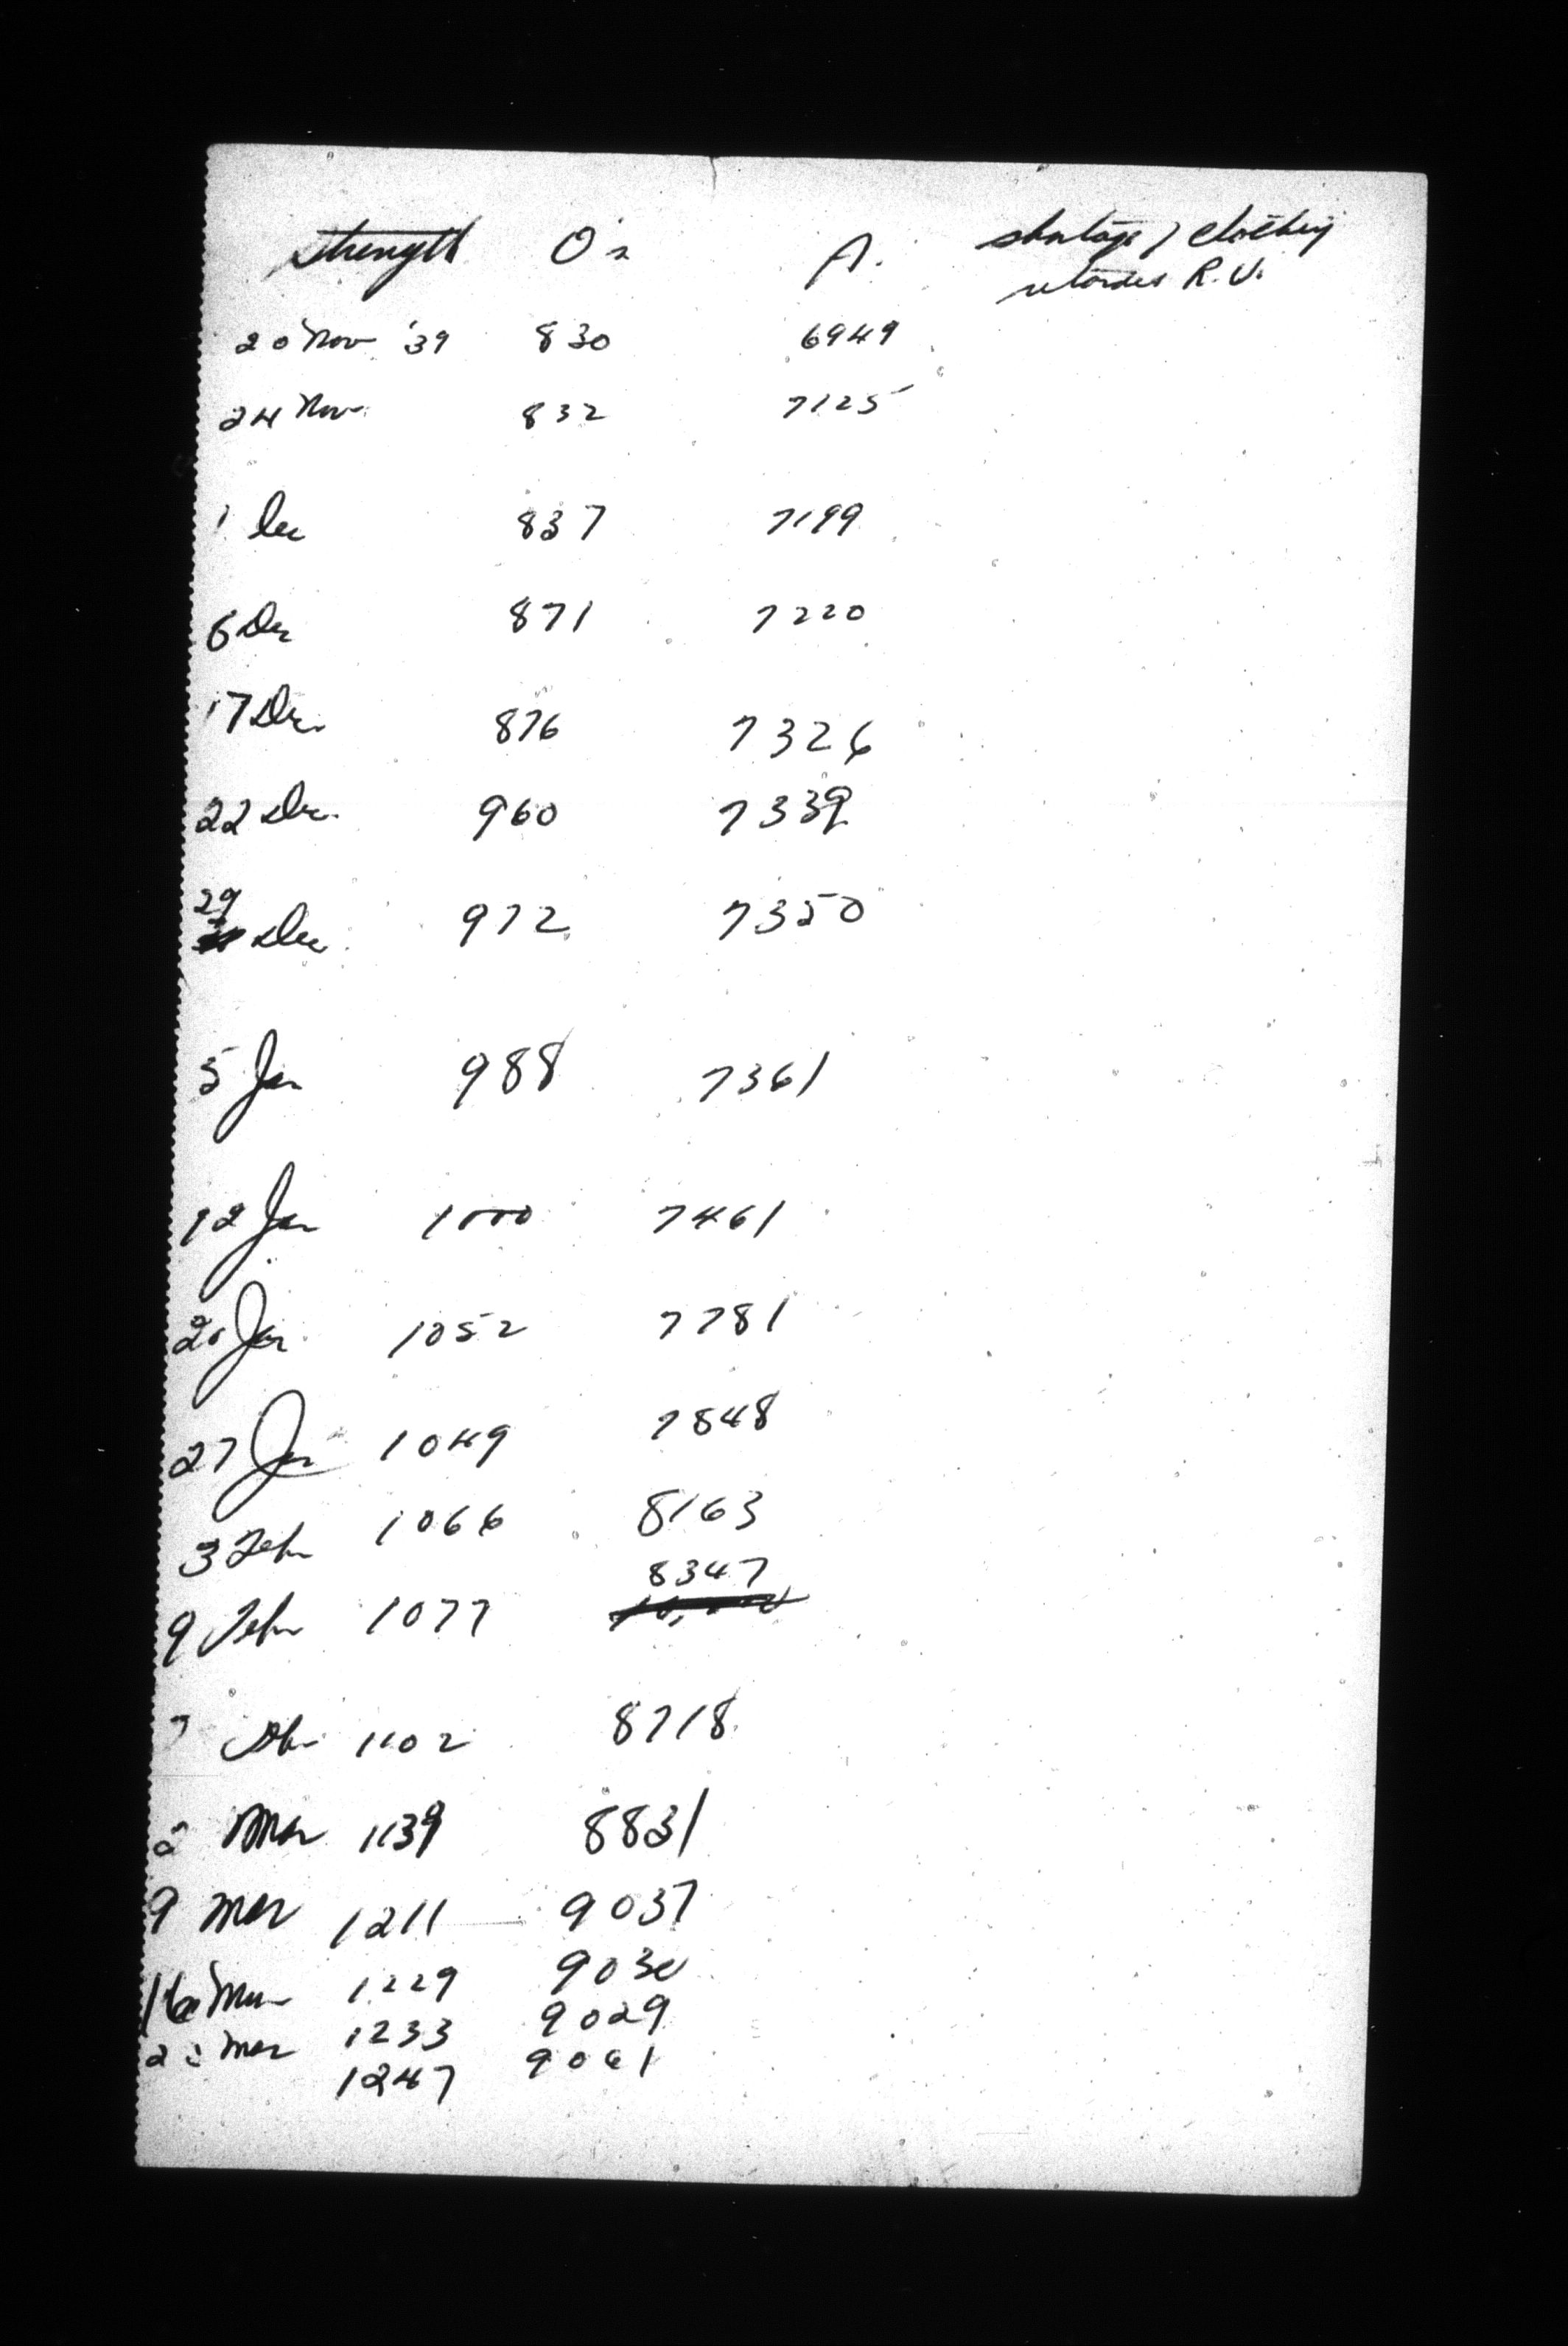 Strength O's A. shortage of clothing
retards R.U.
20 Nov '39 830 6949
24 Nov 832 7125
1 Dec 837 7199
6 Dec 871 7220
17 Dec. 876 7326
22 Dec. 960 7339
29 Dec 972 7350
5 Jan 988 7361
12 Jan 1000 7461
20 Jan 1052 7781
27 Jan 1049 7848
3 Feb 1066 8163
8347
9 Feb 1077
1102 8718
2 Mar 1139 8831
9 Mar 1211 9037
16 Mar 1229 9030
Mar 1233 9029
1247 9061